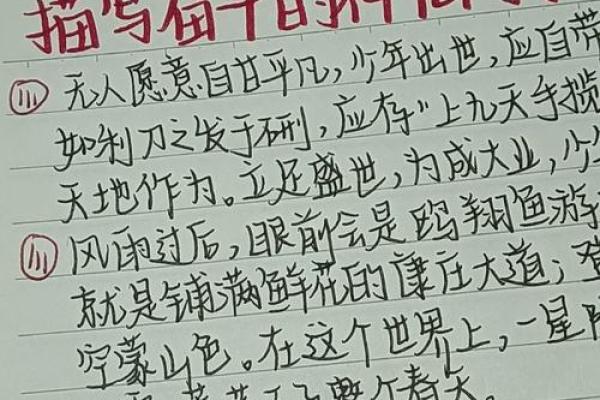 描写奋斗的
(111) 无人愿意自甘平凡,少年出世,应自带
如利刀之发于硎,应存“上九天手揽
天地作为。立足盛世,为成大业,少
(111) 风雨过后,眼前会是鸥翔鱼游
就是铺满鲜花的康庄大道;登
空蒙山色。在这个世界上,一星
整个春天。